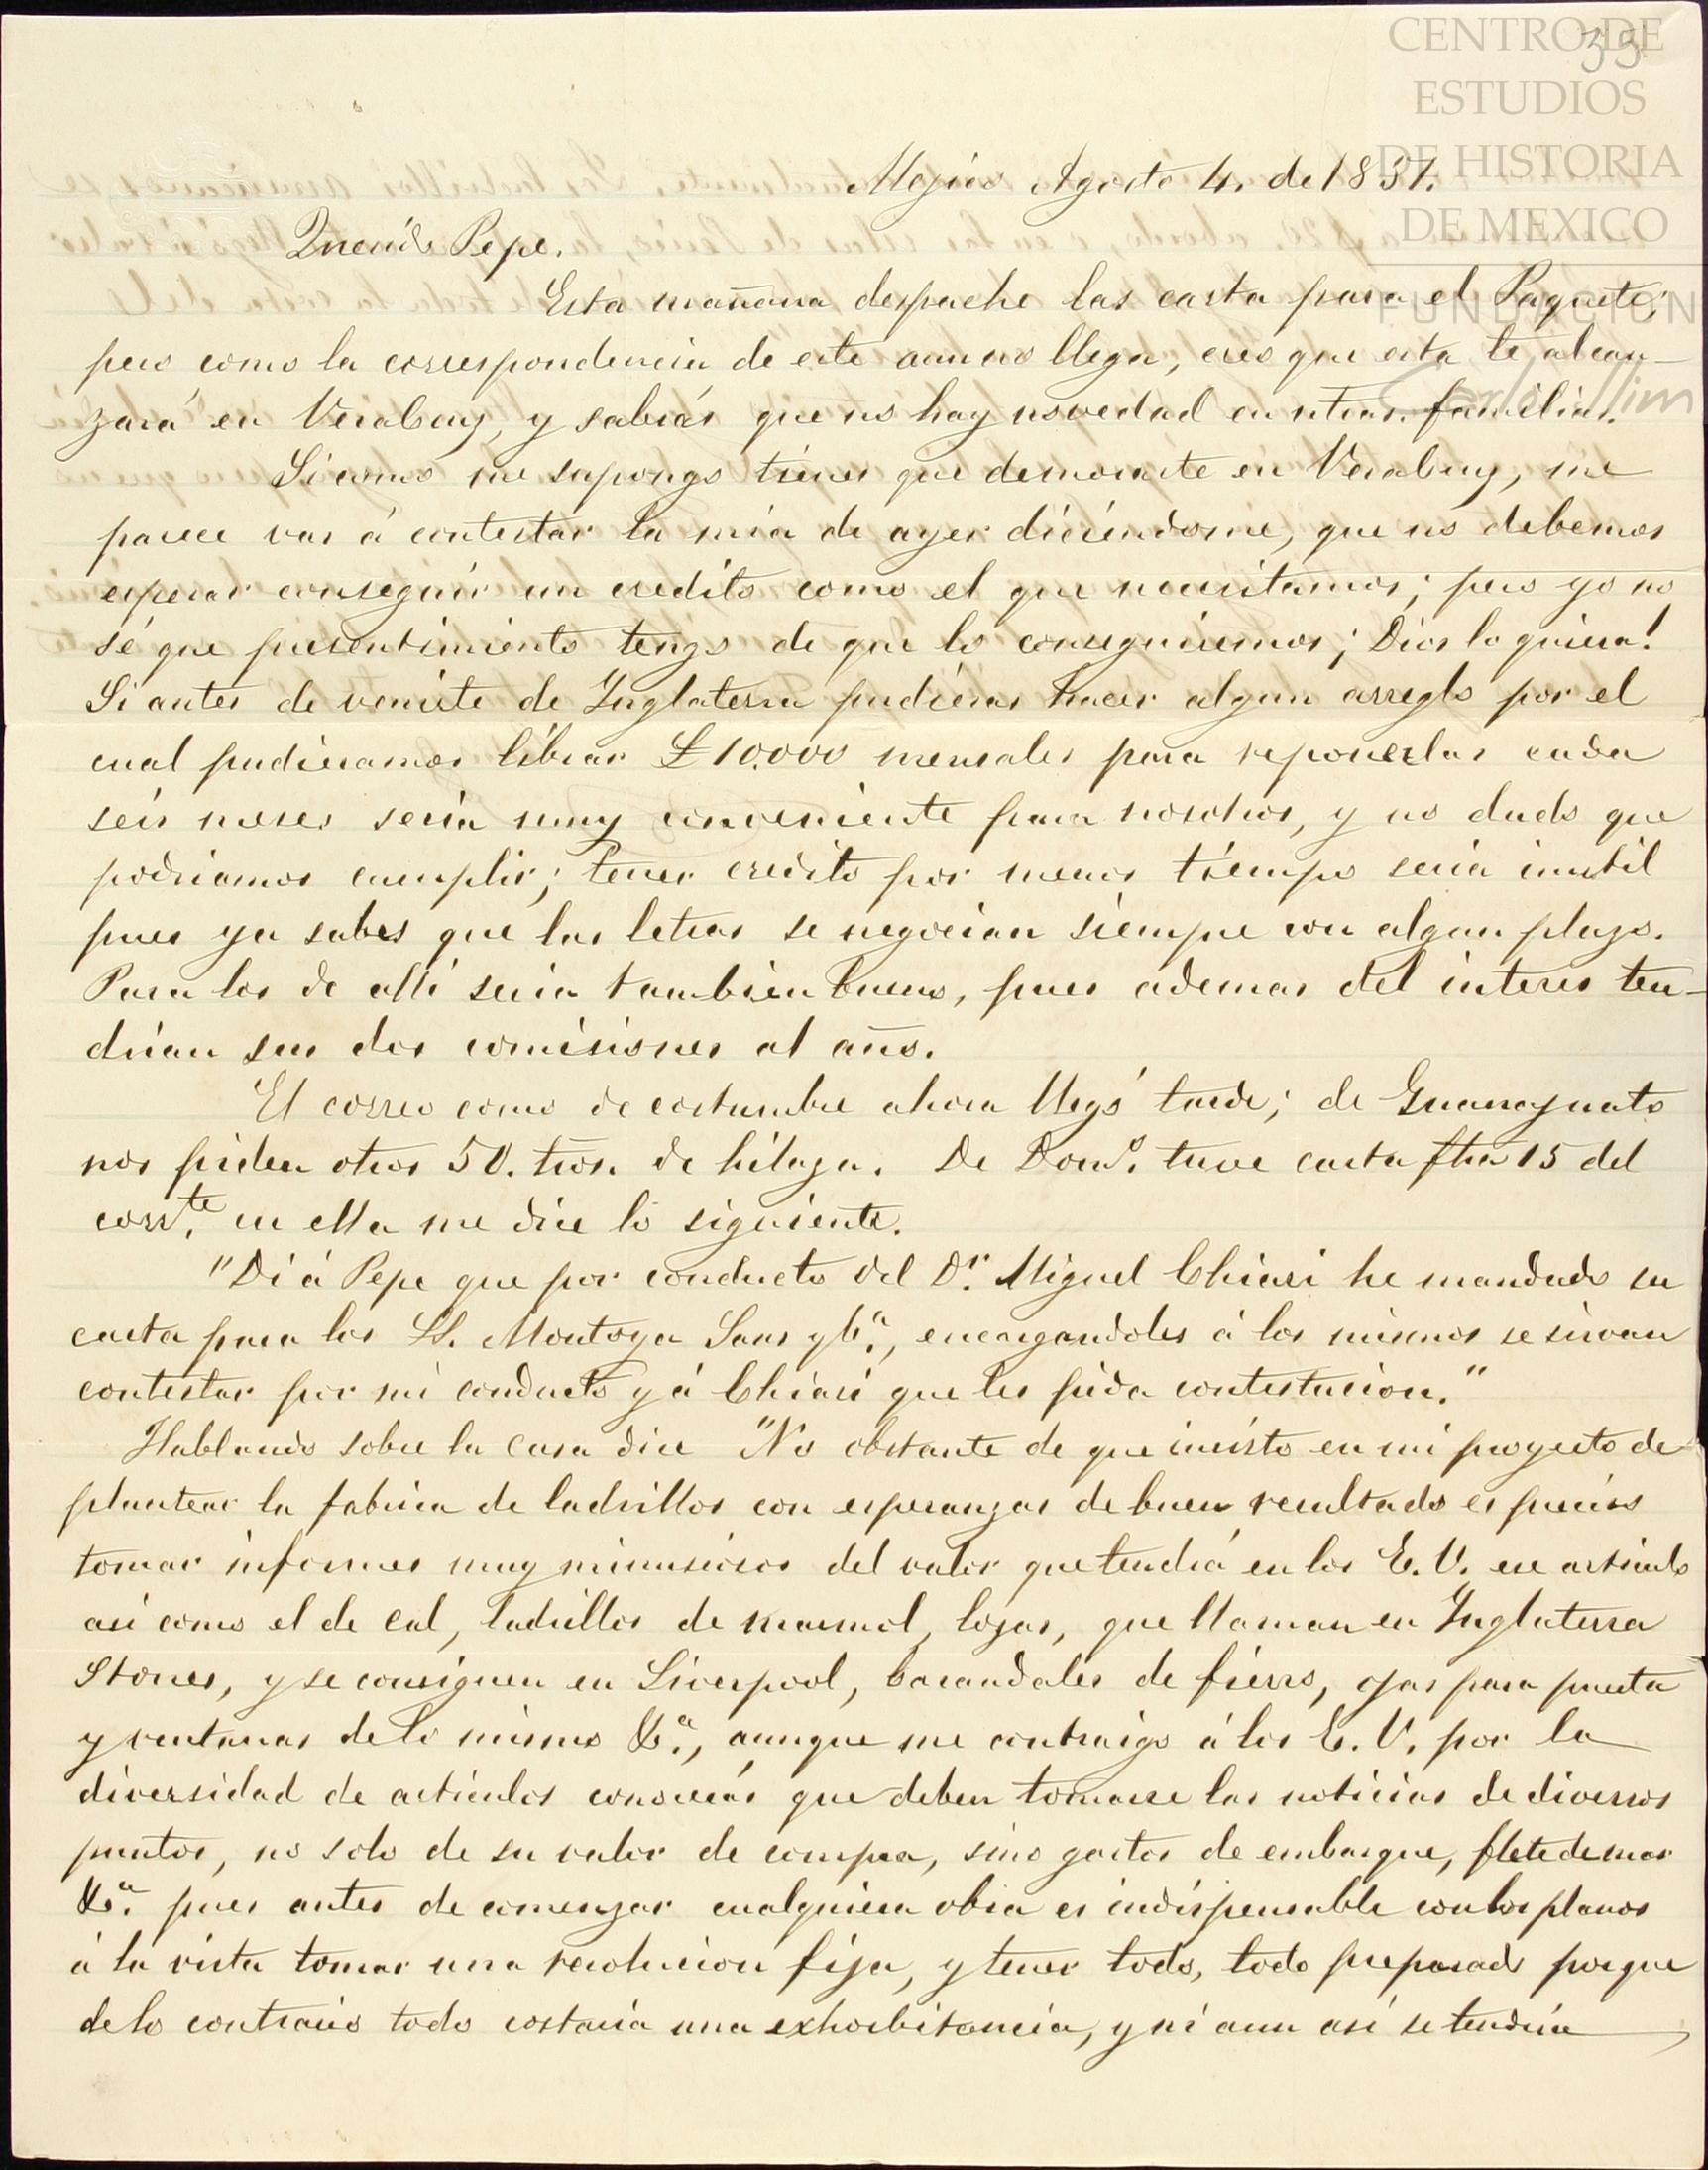 35
CENTRO DE
ESTUDIOS
DE HISTORIA
DE MEXICO
FUNDACIÓN
Carlos Slim
Mejico Agosto 4. de 1857.
Querido Pepe.
Esta mañana despache las carta para el Paquete;
pero como la correspondencia de este aun no llega, creo que esta te alcan-
zará en Verabruz, y sabrás que no hay novedad en ntras. familias.
Si como me supongo tienes que demorarte en Verabruz, me
parece vas á contestar la mia de ayer diciéndome, que no debemos
esperar conseguir un credito como el que necesitamos; pero yo no
sé que presentimiento tengo de que lo conseguiremos; Dios lo quiera!
Si antes de venirte de Inglaterra pudieras hacer algun arreglo por el
cual pudieramos librar £10.000 mensales para reponerlas cada
seis meses seria muy conveniente para nosotros, y no dudo que
podriamos cumplir; tener credito por menos tiempo seria inutil
pues ya sabes que las letras se negocian siempre con algun plazo.
Para los de alli seria tambien bueno, pues ademas del interes ten-
drian sus dos comisiones al año.
El correo como de costumbre ahora llegó tarde; de Guanajuato
nos piden otros 50. trõs. de hilaza. De Domº. tuve carta fha 15 del
corrte. en ella me dice lo siguiente.
"Di á Pepe que por conducto del Dr. Miguel Chiari he mandado su
carta para los SS. Montoya Saus y Cª., encargandoles á los mismos se sirvan
contestar por mi conducto y á Chiari que les pida contestacion."
Hablando sobre la casa dice "No obstante de que insisto en mi proyecto de
plantear la fabrica de ladrillos con esperanzas de buen resultado es preciso
tomar informes muy minusiosos del valor que tendrá en los E. U. ese articulo
asi como el de cal, ladrillos de marmol, lozas, que llaman en Inglaterra
Stones, y se consiguen en Liverpool, barandales de fierro, ojas para puerta
y ventanas de lo mismo &ª., aunque me contraigo á los E. U. por la
diversidad de articulos conocerás que deben tomarse las noticias de diversos
puntos, no solo de su valor de compra, sino gastos de embarque, flete de mar
&ª. pues antes de comenzar cualquiera obra es indispensable con los planos
á la vista tomar una resolucion fija, y tener todo, todo preparado porque
de lo contrario todo costaria una exhorbitancia, y ni aun asi se tendria